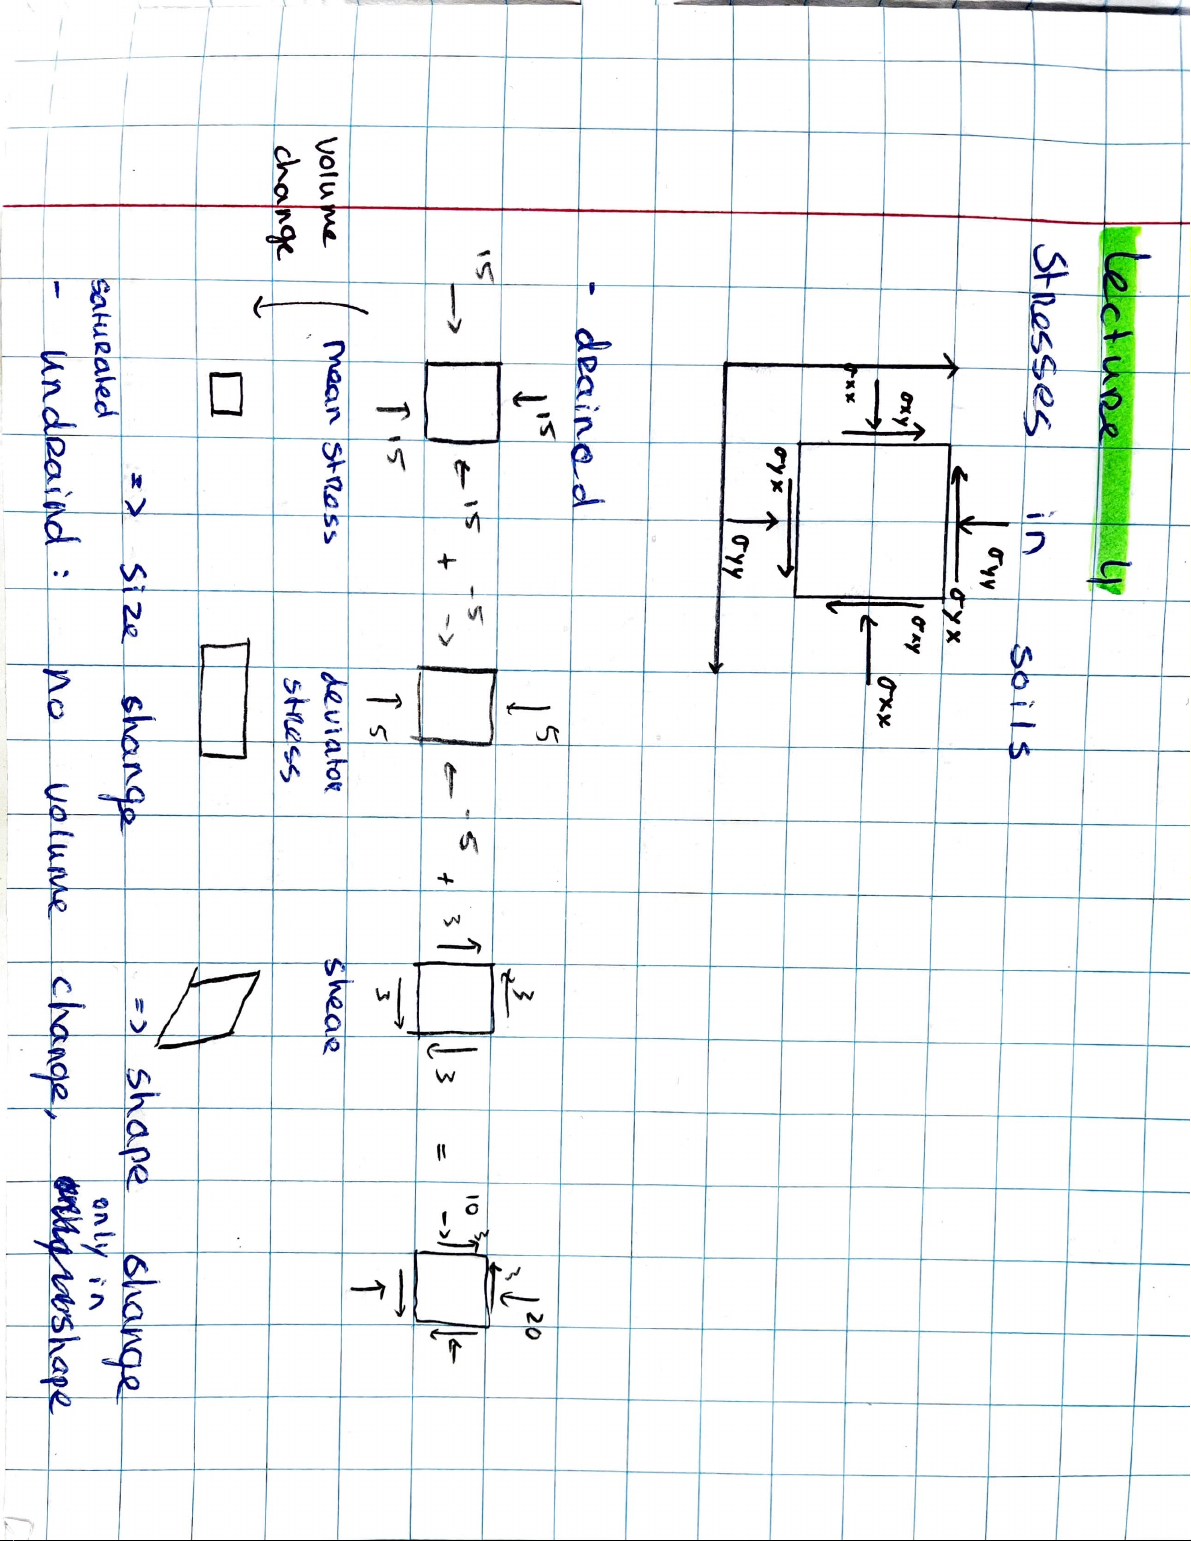 Lecture 4
Stresses in soils
σyy
σyx
σxy
σxx
σxy
σxx
σyx
σyy
- draind
15 15 15 15 + -5 5 5 -5 + 3 3 3 3 = 10 3 3 20
volume change
mean stress
deviator stress
shear
=> size change => shape change
saturated
- undraind: no volume change, only in shape